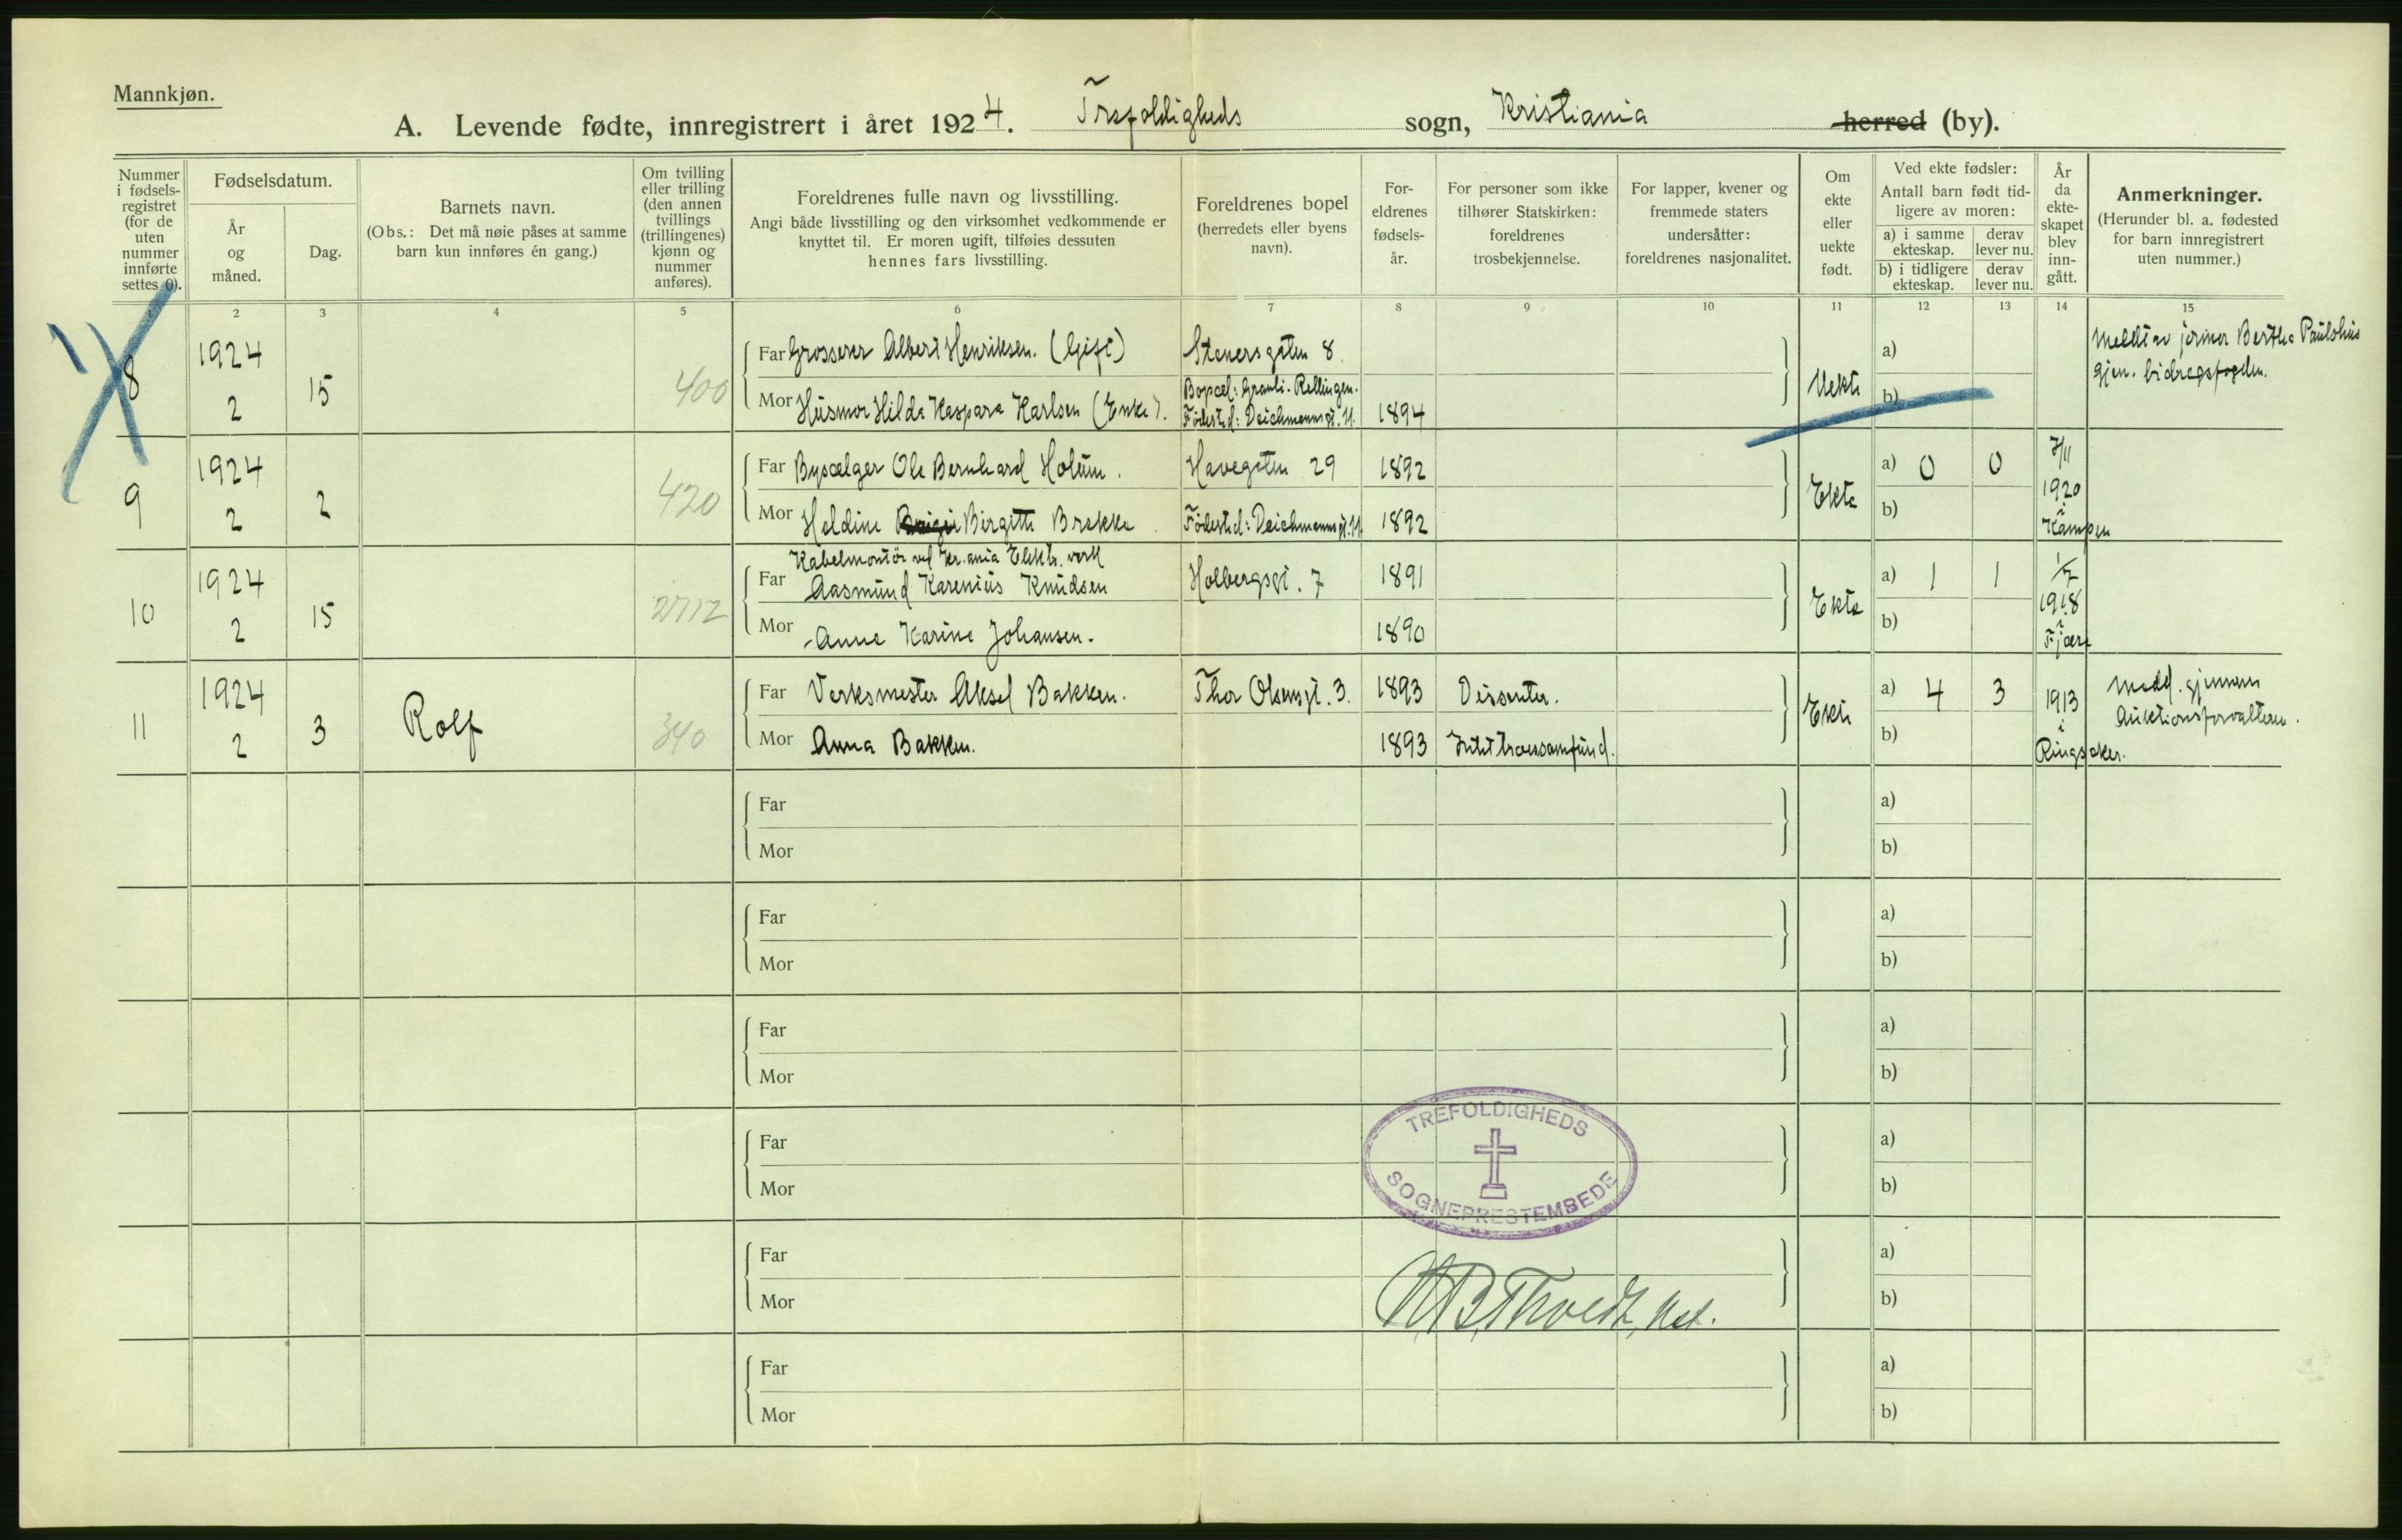 Mannkjøn.
A. Levende fødte, innregistrert i året 1924. Trefoldigheds sogn, Kristiania herred (by).
Nummer i fødsels-registret (for de uten nummer innførte settes 0).
Fødselsdatum.
År og måned.
Dag.
Barnets navn.
(Obs.: Det må nøie påses at samme barn kun innføres én gang.)
Om tvilling eller trilling (den annen tvillings (trillingenes) kjønn og nummer anføres).
Foreldrenes fulle navn og livsstilling.
Angi både livsstilling og den virksomhet vedkommende er knyttet til. Er moren ugift, tilføies dessuten hennes fars livsstilling.
Foreldrenes bopel (herredets eller byens navn).
For-eldrenes fødsels-år.
For personer som ikke tilhører Statskirken: foreldrenes trosbekjennelse.
For lapper, kvener og fremmede staters undersåtter: foreldrenes nasjonalitet.
Om ekte eller uekte født.
Ved ekte fødsler:
Antall barn født tid-ligere av moren:
a) i samme ekteskap. derav lever nu.
b) i tidligere ekteskap. derav lever nu.
År da ekte-skapet blev inn-gått.
Anmerkninger.
(Herunder bl. a. fødested for barn innregistrert uten nummer.)
2 3 4 5 6 7 8 9 10 11 12 13 14 15
8 1924 2 15 400
Far Grosserer Albert Henriksen. (Gift) Stenersgaten 8.
Mor Husmor Hilda Kaspara Karlsen (Enke). Bopæl: Granli. Rellingen. Fødested: Deichmannsgt. 11. 1894
Uekte a) b)
Meldt av jormor Bertha Paulshus gjen. bidragsfogden.
9 1924 2 2 420
Far Bysælger Ole Bernhard Holum. Havegaten 29 1892
Mor Haldine Birgitte Brekke. Fødested: Deichmannsgt. 11. 1892
Ekte a) 0 0 b)
7/11 1920 i Kampen
10 1924 2 15 2712
Kabelmontør ved Kr.ania Elektr. verk
Far Aasmund Karenius Knudsen Holbergsgt. 7 1891
Mor Anna Karine Johansen. 1890
Ekte a) 1 1 b)
1/7 1918 i Fjære
11 1924 2 3 Rolf 340
Far Verksmester Aksel Bakken. Thor Olsensgt. 3. 1893 Dissenter.
Mor Anna Bakken. 1893 Intet trossamfund.
Ekte a) 4 3 b)
1913 i Ringsaker.
Medd. gjennem Auktionsforvalteren.
Far a)
Mor b)
Far a)
Mor b)
Far a)
Mor b)
Far a)
Mor b)
TREFOLDIGHEDS
SOGNEPRESTEMBEDE
Far a)
Mor b)
Far a)
Mor b)